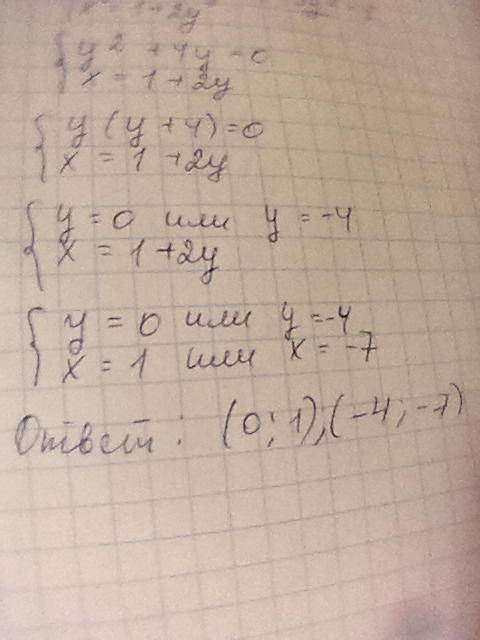 x = 1 + 2y
y² + 4y = 0
x = 1 + 2y
y (y + 4) = 0
x = 1 + 2y
y = 0 или y = -4
x = 1 + 2y
y = 0 или y = -4
x = 1 или x = -7
Ответ: (0; 1), (-4; -7)